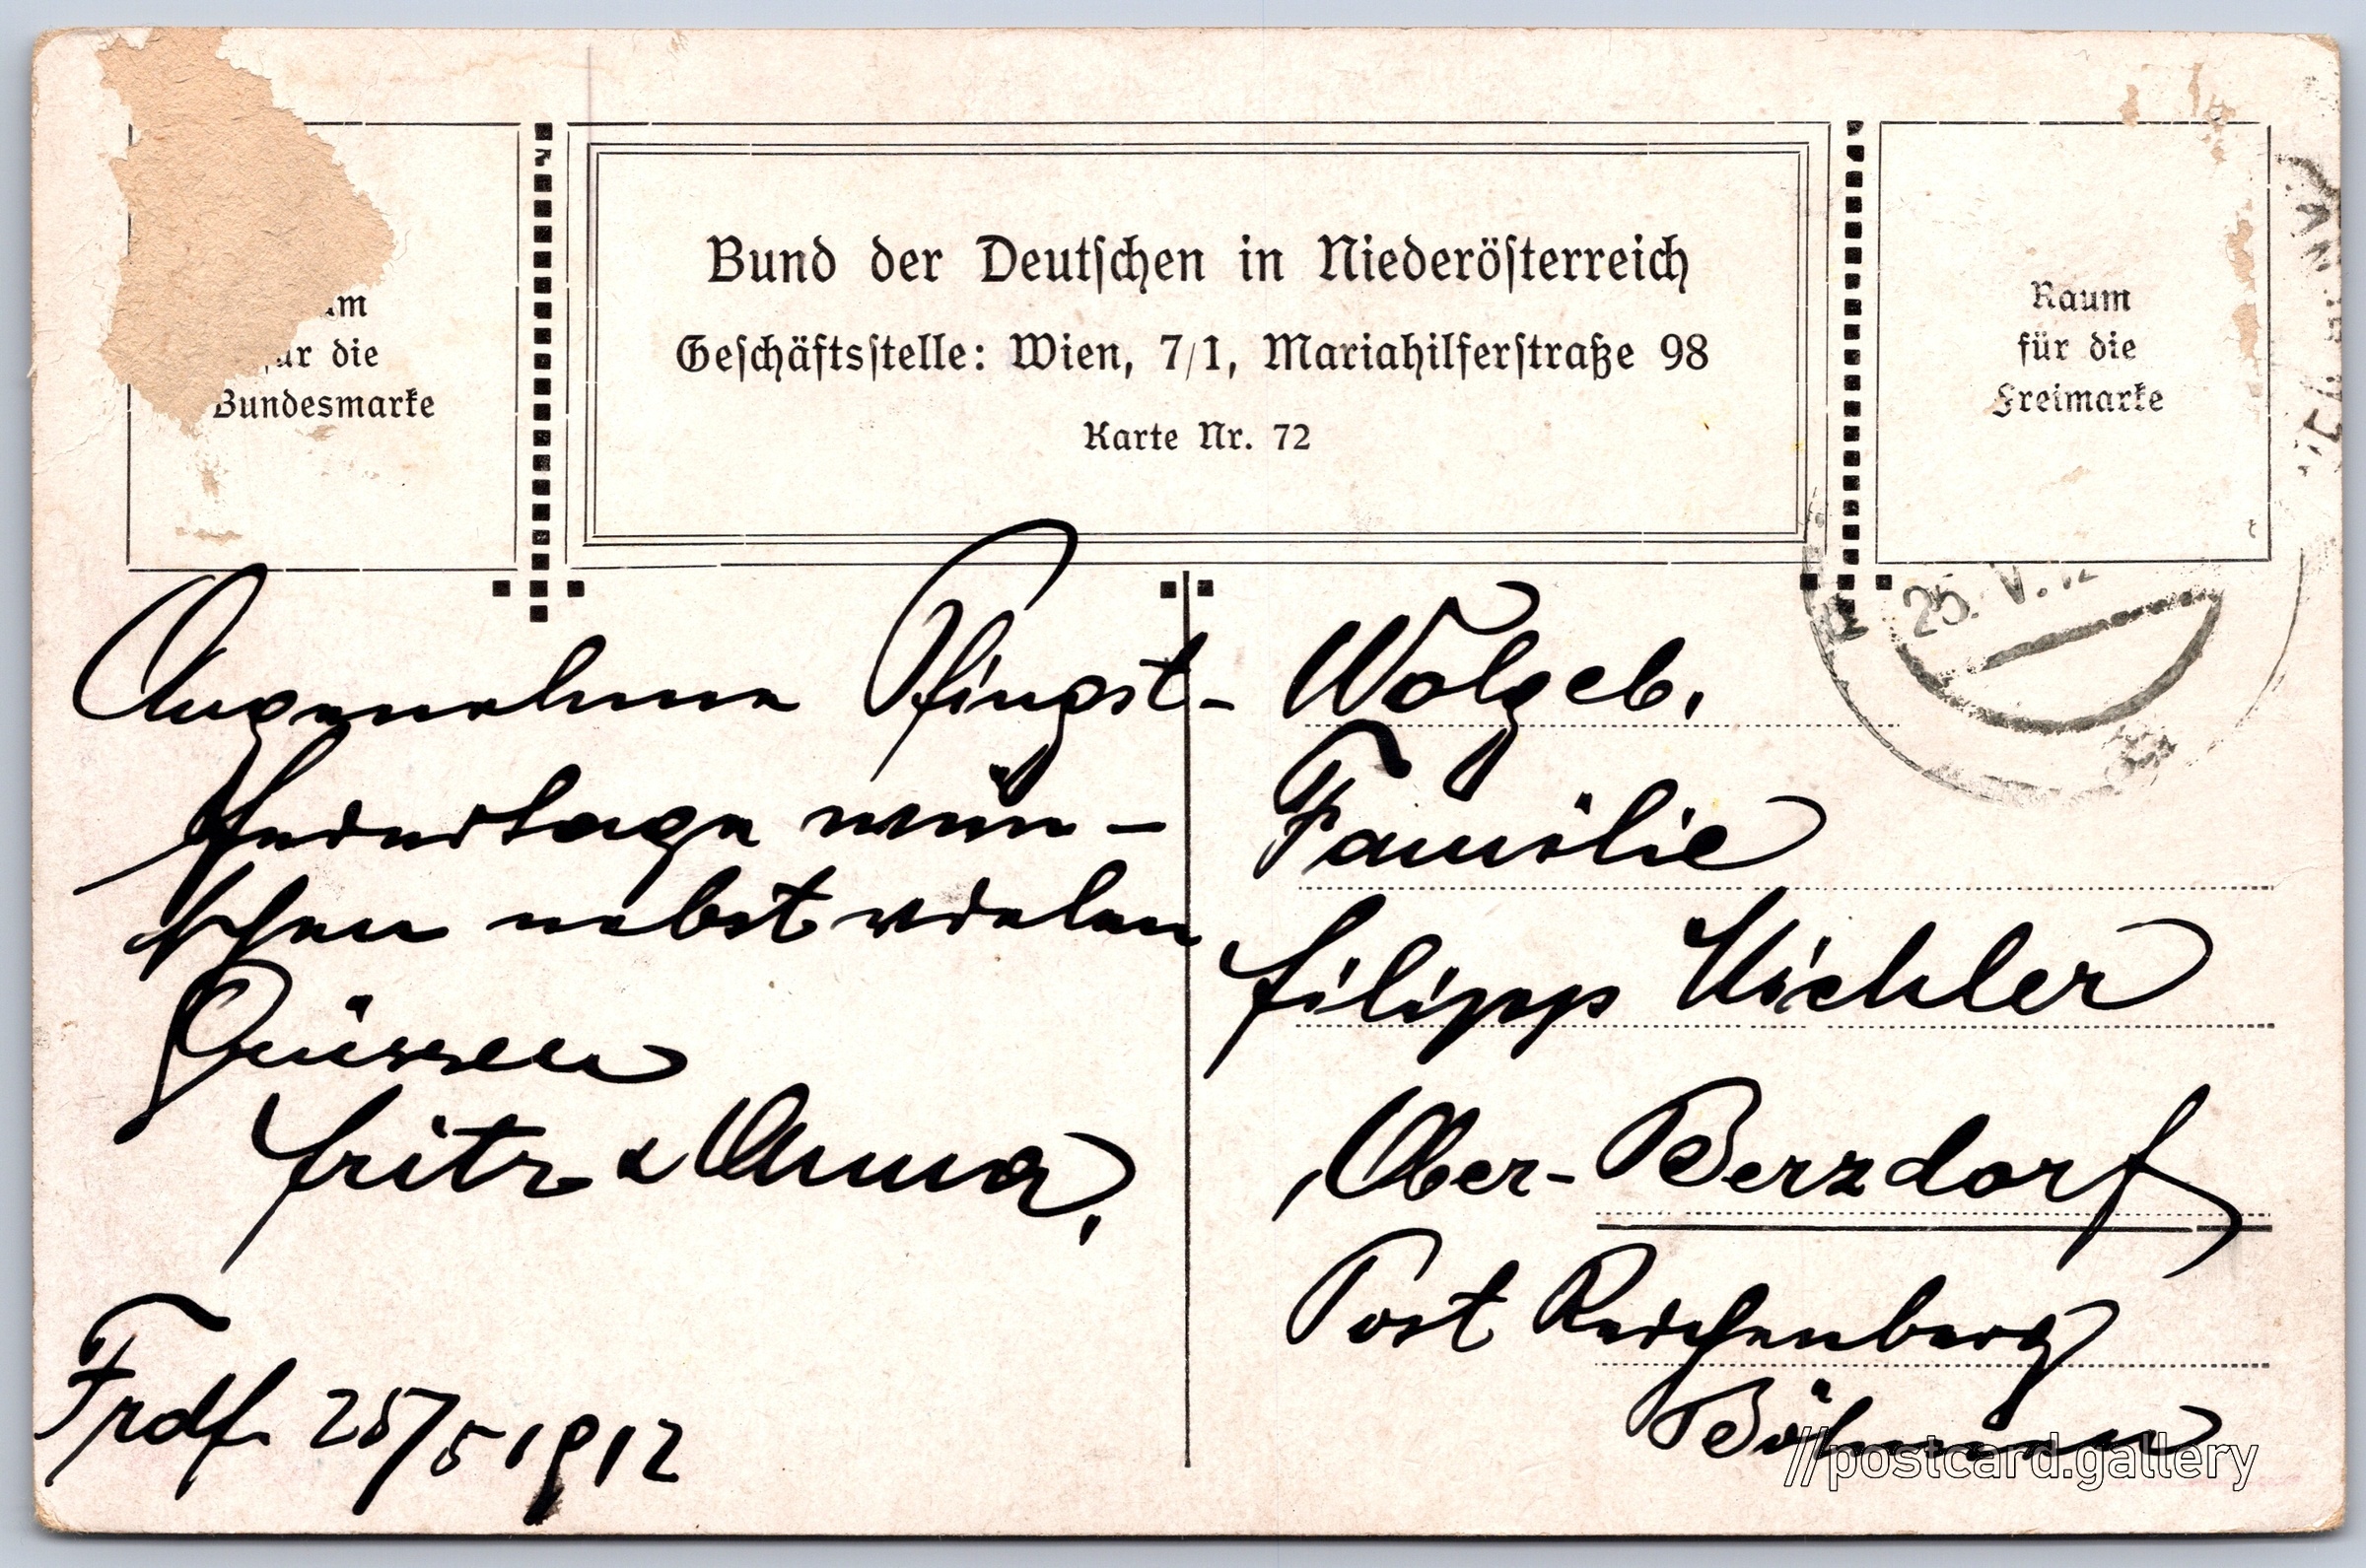 Raum
für die
Bundesmarke
Bund der Deutschen in Niederösterreich
Geschäftsstelle: Wien, 7/1, Mariahilferstraße 98
Karte Nr. 72
Raum
für die
Freimarke
25. V. 12
Angenehme Pfingst-
feiertage wün-
schen nebst vielen
Grüssen
Fritz & Anna,
Frdf 25/5 1912
Wolgeb.
Familie
Filipp Kichler
Ober-Berzdorf
Post Reichenberg
Böhmen
//postcard.gallery